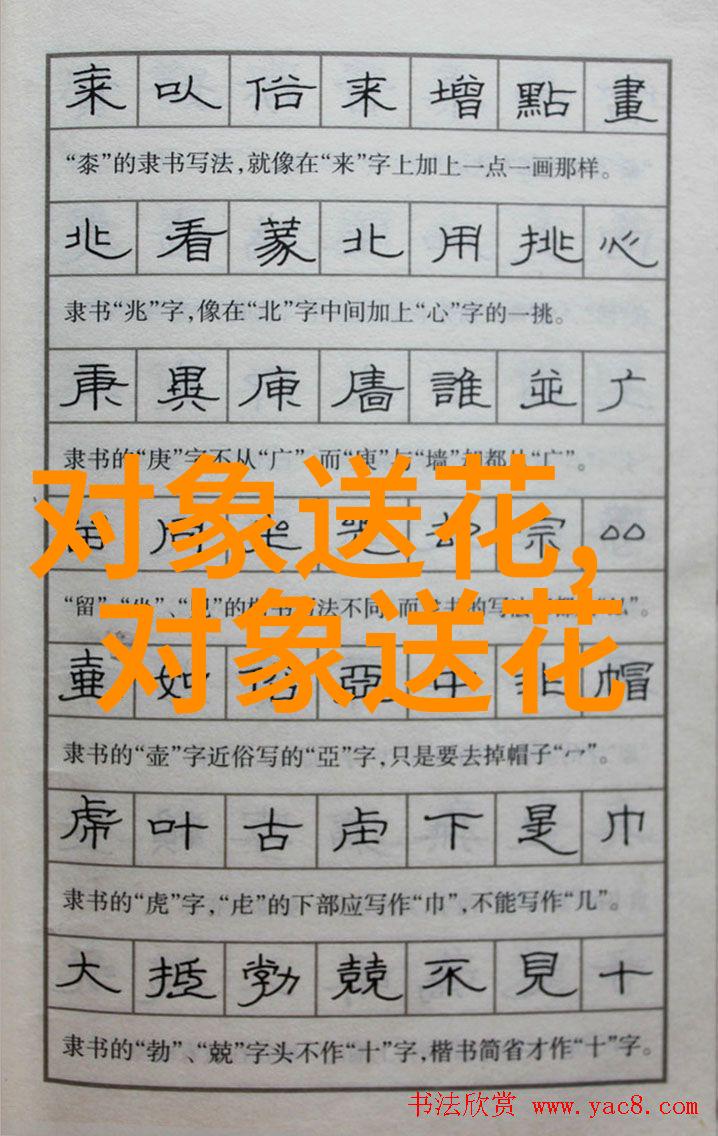 来㕥俗来增點畫
“桼”的隶书写法，就像在“来”字上加上一点一画那样。
兆看蒙北用挑心
隶书“兆”字，像在“北”字中间加上“心”字的一挑。
庚異庾廧誰並广
隶书的“庚”字不从“广”，而“庾”与“墙”却都从“广”。
对象送花，
同 宗
“留”、“坐”、 的 写法不同，而隶书的写法 都
对象送花
壷如俗亞中非帽
隶书的“壶”字近俗写的“亞”字，只是要去掉帽子“冖”。
虎叶古虐下是巾
隶书的“虎”字，“虍”的下部应写作“巾”，不能写作“几”。
大抵勃兢不見十
隶书的“勃”、“兢”字头不作“十”字，楷书简省才作“十”字。
书法欣赏 www.yac8.com